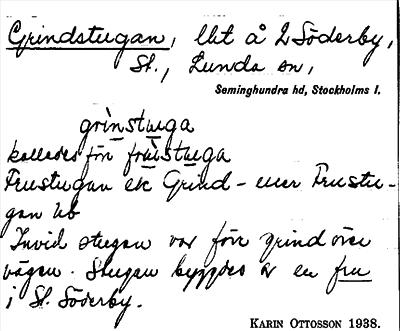 Grindstugan, lht å L Söderby,
St., Lunda sn,
Seminghundra hd, Stockholms l.
grìnstuga
kallades förr frùstuga
Frustugan el. Grind- eller Frustu-
gan hb
Invid stugan var förr grind över
vägen. Stugan byggdes av en fru
i St. Söderby.
KARIN OTTOSSON 1938.